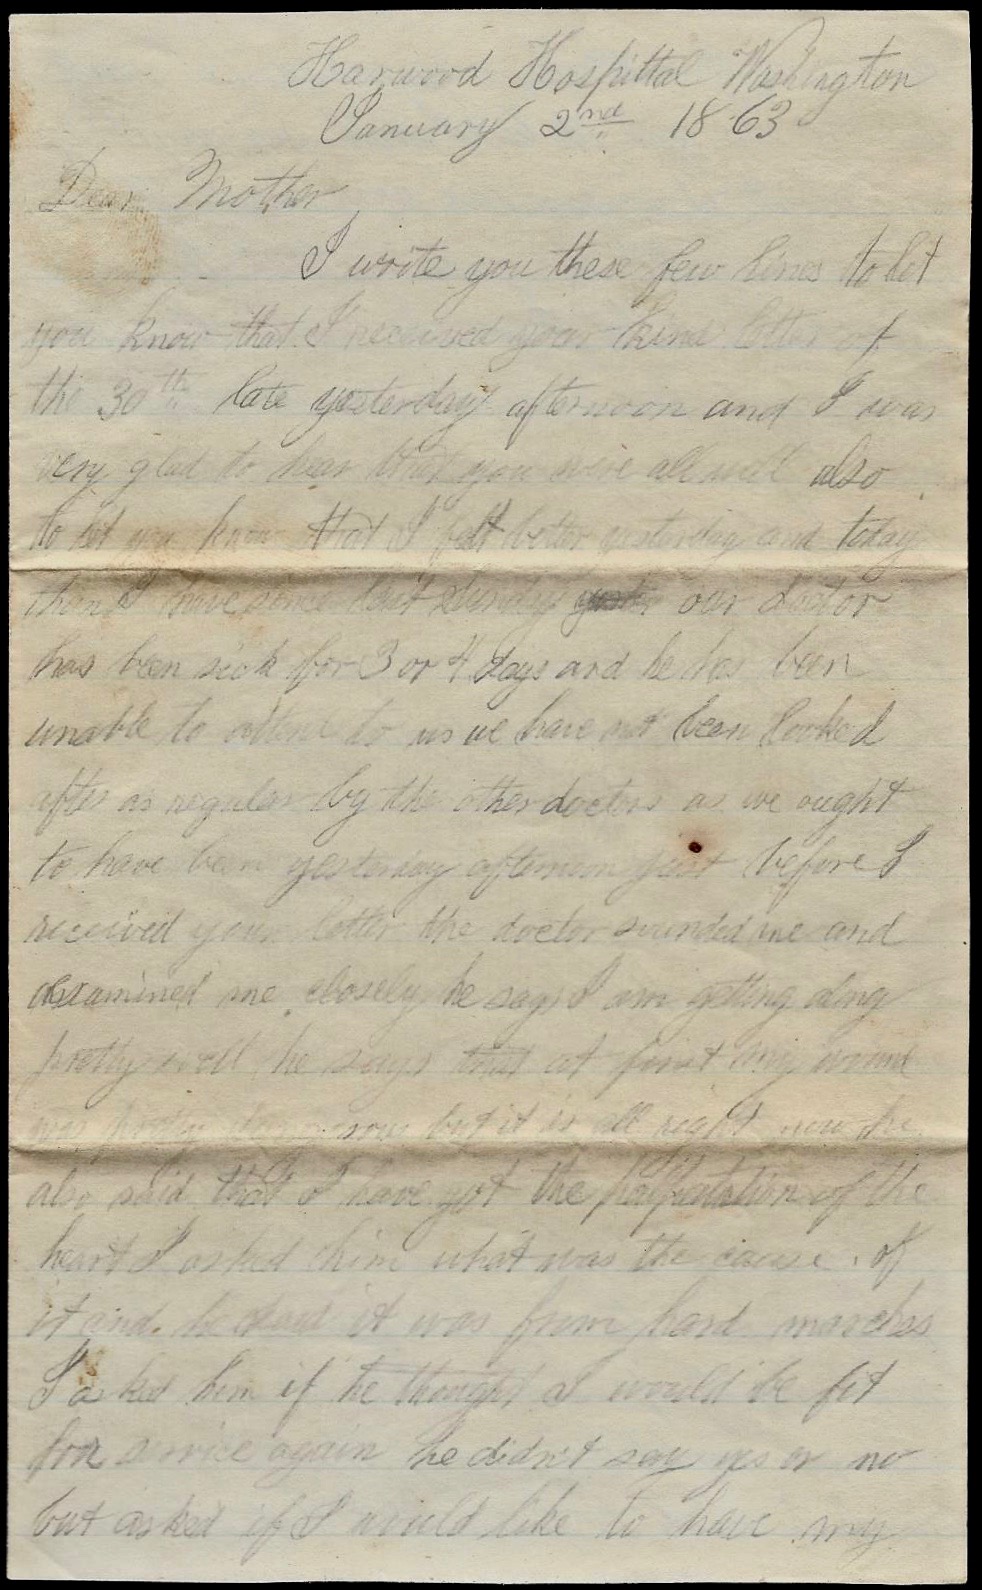 Harwood Hospittal Washington
January 2nd 1863
Dear Mother
I write you these few lines to let
you know that I received your kind letter of
the 30th late yesterday afternoon and I was
very glad to hear that you were all well also
to let you know that I felt better yesterday and today
than I have since last Sunday our doctor
has been sick for 3 or 4 days and he has been
unable to attend to us we have not been looked
after as regular by the other doctors as we ought
to have been yesterday afternoon just before I
received your letter the doctor sounded me and
examined me closely he says I am getting along
pretty well he says that at first my wound
was pretty dangerous but it is all right now he
also said that I have got the palpatation of the
heart I asked him what was the cause of
it and he said it was from hard marches
I asked him if he thought I would be fit
for service again he didn't say yes or no
but asked if I would like to have my